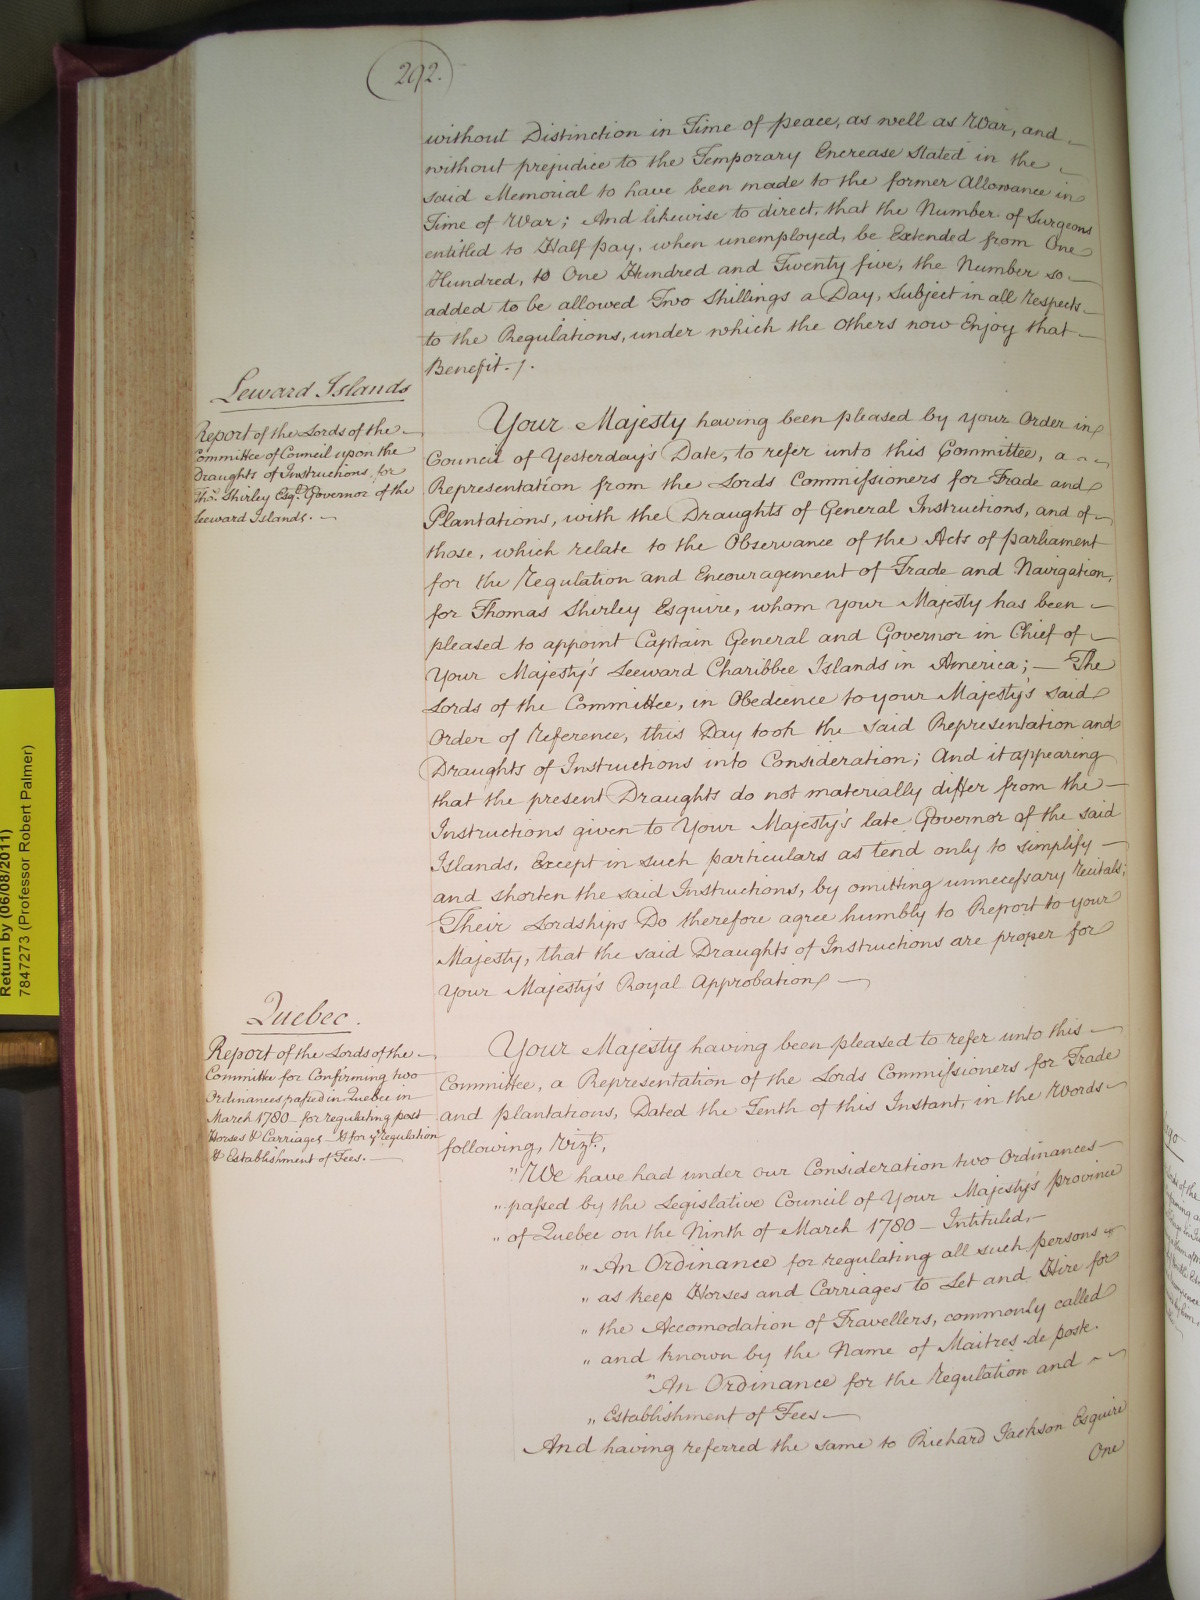 292.
without Distinction in Time of peace, as well as War, and
without prejudice to the Temporary Encrease stated in the
said Memorial to have been made to the former Allowance in
Time of War; And likewise to direct, that the Number of Surgeons
entitled to Half pay, when unemployed, be Extended from One
Hundred, to One Hundred and Twenty five, the Number so
added to be allowed Two Shillings a Day, Subject in all respects
to the Regulations, under which the others now Enjoy that
Benefit. /.
Leward Islands
Report of the Lords of the
Committee of Council upon the
Draughts of Instructions for
Thos. Shirley Esqr. Governor of the
Leeward Islands.
Your Majesty having been pleased by your Order in
Council of Yesterday's Date, to refer unto this Committee, a
Representation from the Lords Commissioners for Trade and
Plantations, with the Draughts of General Instructions, and of
those, which relate to the Observance of the Acts of parliament
for the Regulation and Encouragement of Trade and Navigation,
for Thomas Shirley Esquire, whom your Majesty has been
pleased to appoint Captain General and Governor in Chief of
Your Majesty's Leeward Charibbee Islands in America; — The
Lords of the Committee, in Obedience to your Majesty's said
Order of Reference, this Day took the said Representation and
Draughts of Instructions into Consideration; And it appearing
that the present Draughts do not materially differ from the
Instructions given to Your Majesty's late Governor of the said
Islands, Except in such particulars as tend only to simplify
and shorten the said Instructions, by omitting unnecessary recitals;
Their Lordships Do therefore agree humbly to Report to your
Majesty, that the said Draughts of Instructions are proper for
Your Majesty's Royal Approbation
Quebec.
Report of the Lords of the
Committee for Confirming two
Ordinances passed in Quebec in
March 1780 for regulating post
Horses & Carriages & for ye regulation
& Establishment of Fees.
Your Majesty having been pleased to refer unto this
Committee, a Representation of the Lords Commissioners for Trade
and plantations, Dated the Tenth of this Instant, in the Words
following, Vizt.,
"We have had under our Consideration two Ordinances
" passed by the Legislative Council of Your Majesty's province
" of Quebec on the Ninth of March 1780 — Intituled,
" An Ordinance for regulating all such persons
" as keep Horses and Carriages to Let and Hire for
" the Accomodation of Travellers, commonly called
" and known by the Name of Maitres de poste.
"An Ordinance for the Regulation and
" Establishment of Fees
And having referred the same to Richard Jackson Esquire
One
Return by (06/08/2011)
7847273 (Professor Robert Palmer)